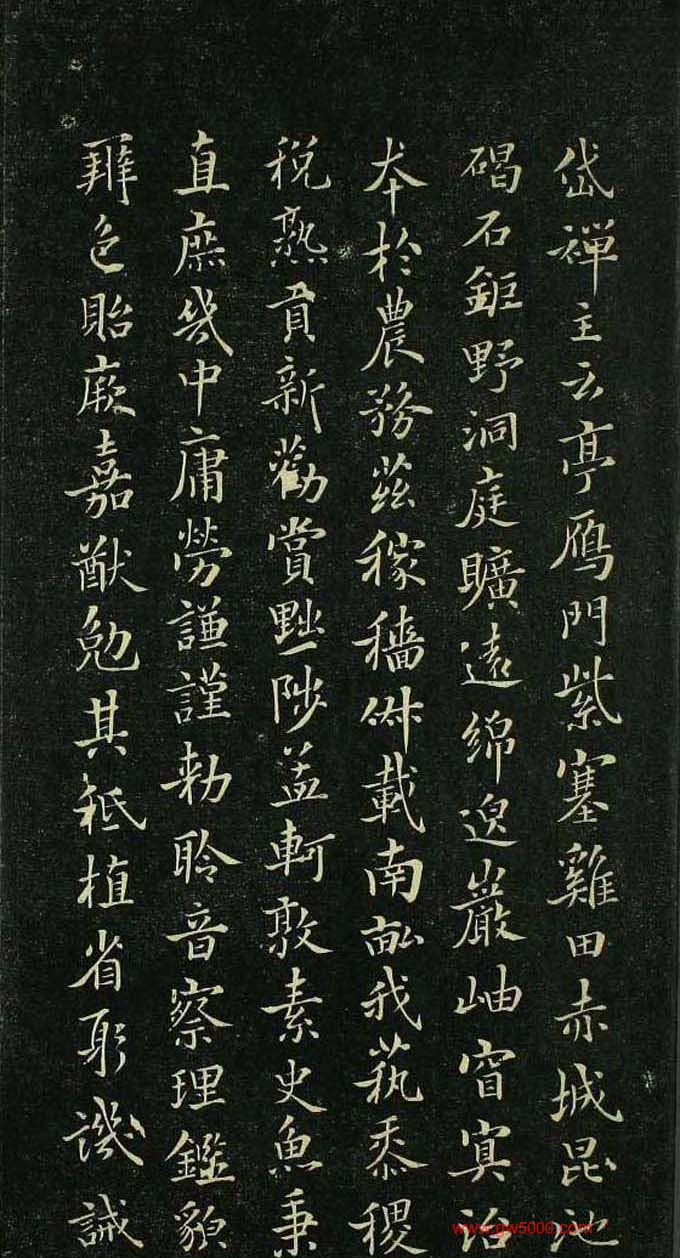 岱禪主云亭鴈門紫塞雞田赤城昆池
碣石鉅野洞庭曠遠綿邈巖岫窅冥治
本於農務茲稼穡俶載南畝我蓺黍稷
稅熟貢新勸賞黜陟孟軻敦素史魚秉
直庶幾中庸勞謙謹勅聆音察理鑑貌
辨色貽厥嘉猷勉其祗植省躬譏誡
www.gw5000.com